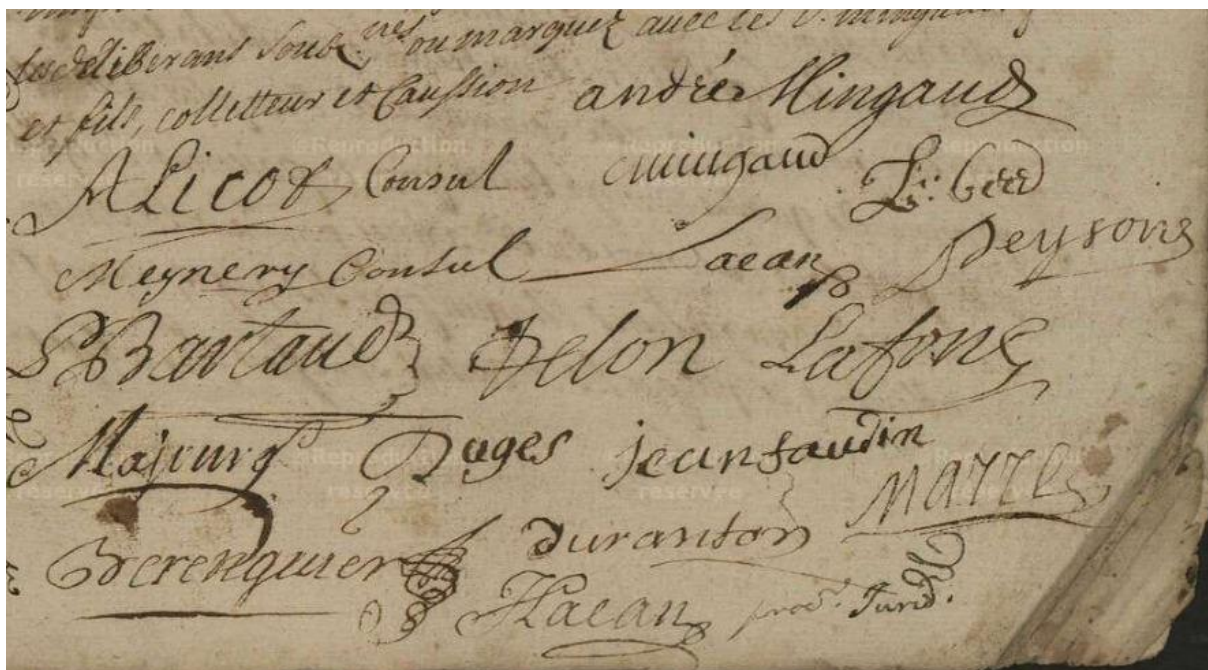 les deliberans souz.nes ou marquez avec les s. mingaud
et fils, colletteur et Caussion andré Mingaud
A Licot Consul mingaud L: Gerd
Meynery Consul Lacan Peysons
P Bartaud Delon Lafons
Majeurs Pages jean faudin
Marre
Berenguier duranton
Hacan proc.r Jurid.